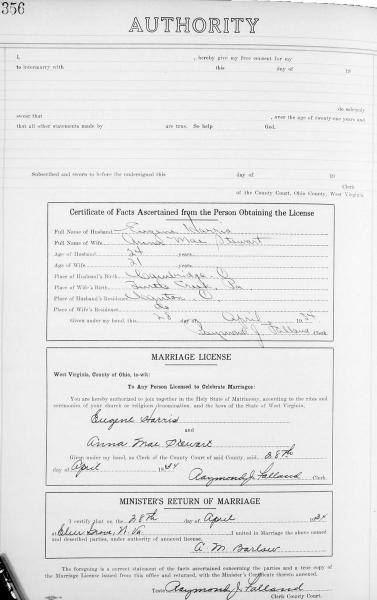 356
AUTHORITY
I, , hereby give my free consent for my
to intermarry with this day of 19
do solemnly
swear that , over the age of twenty-one years and
that all other statements made by are true. So help God.
Subscribed and sworn to before the undersigned this day of 19
Clerk
of the County Court, Ohio County, West Virginia.
Certificate of Facts Ascertained from the Person Obtaining the License
Full Name of Husband Eugene Harris
Full Name of Wife Anna Mae Stewart
Age of Husband 24 years
Age of Wife 21 years
Place of Husband's Birth Cambridge, O.
Place of Wife's Birth Turtle Creek, Pa
Place of Husband's Residence O.
Place of Wife's Residence do
Given under my hand, this 28 day of April 1934
Raymond J. Falland Clerk
MARRIAGE LICENSE
West Virginia, County of Ohio, to-wit:
To Any Person Licensed to Celebrate Marriages:
You are hereby authorized to join together in the Holy State of Matrimony, according to the rites and
ceremonies of your church or religious denomination, and the laws of the State of West Virginia,
Eugene Harris
and
Anna Mae Stewart
Given under my hand, as Clerk of the County Court of said county, said, 28th
day of April 1934
Raymond J. Falland Clerk
MINISTER'S RETURN OF MARRIAGE
I certify that on the 28th day of April 1934
at Elm Grove, W. Va. I united in Marriage the above named
and described parties, under authority of annexed license.
A. M. Barlow
The foregoing is a correct statement of the facts ascertained concerning the parties and a true copy of
the Marriage License issued from this office and returned, with the Minister's Certificate thereto annexed.
Teste: Raymond J. Falland
Clerk County Court.